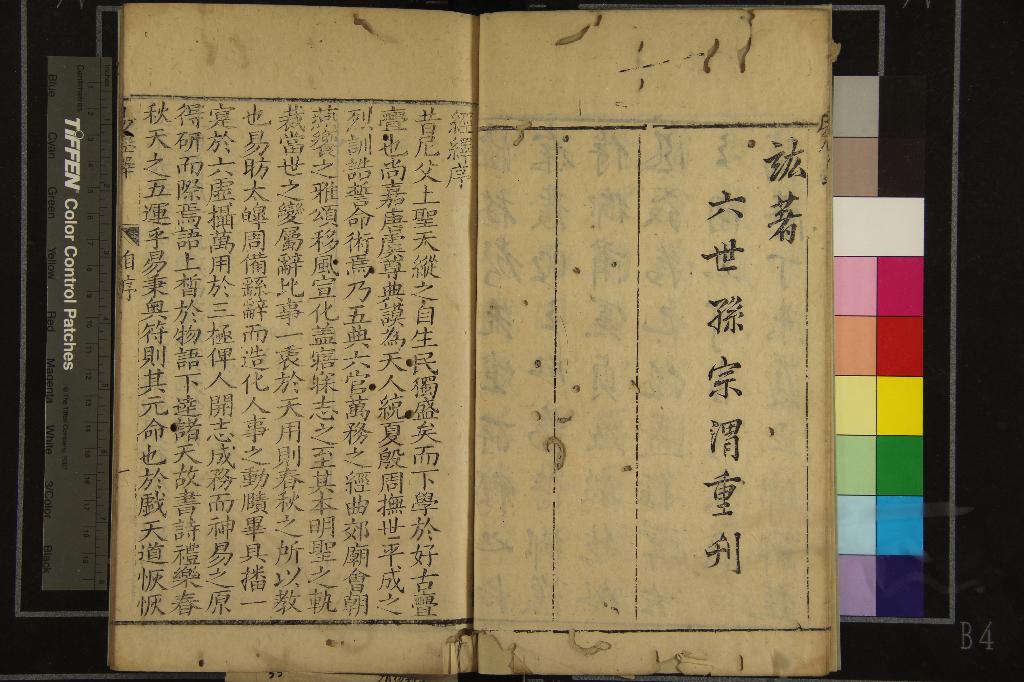 竑著
六世孫宗渭重刋
經繹序
昔尼父上聖天縱之自生民獨盛矣而下學於好古亹
亹也尚嘉唐虞尊典謨為天人統夏殷周撫世平成之
烈訓誥誓命術焉乃五典六官萬務之經曲郊廟會朝
燕饗之雅頌移風宣化盖寤寐志之至其本明聖之軌
裁當世之變屬辭比事一衷於天用則春秋之所以教
也易昉太皡周備繇辭而造化人事之動賾畢具播一
寔於六虛攝萬用於三極俾人開志成務而神易之原
得研而際焉語上晢於物語下達諸天故書詩禮樂春
秋天之五運乎易秉奥符則其元命也於戲天道恢恢
自序
一
TIFFEN Color Control Patches
© The Tiffen Company, 2007
Centimetres
Inches
Blue
Cyan
Green
Yellow
Red
Magenta
White
3/Color
Black
B4